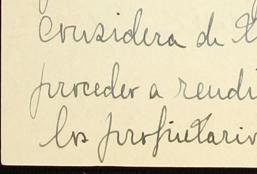 considera de
proceder a rendi
los propietario